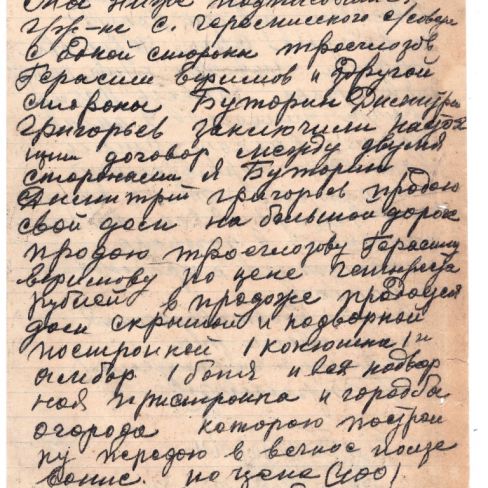 Мы ниже подписавшиеся
гр-не с. Черемисского с/совета
с одной стороны Троеглозов
Герасим веримов и другой
стороны Буторин Дмитри
григорьев заключили настоя
щии договор между двумя
сторонами я Буторин
Дмитрий григорьев продою
свой дом на большой дороге
продою троеглозову Герасиму
веримову по цене четыреста
рублей в продоже продоется
дом скрышой и подворной
постройкой 1 конюшна 1
амбар 1 баня и вся подвор
ная пристройка и городба
огорода которою построй
ку передою в вечное пользо
вание. по цене (400)